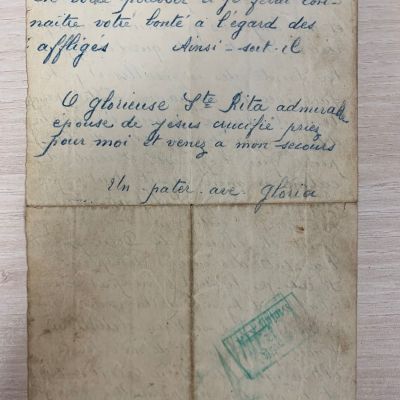 et je ferai con-
naître votre bonté a l'égard des
affligés Ainsi-soit-il
O glorieuse Ste Rita admirable
épouse de jésus crucifié priez
pour moi et venez a mon secours
Un pater. ave. gloria